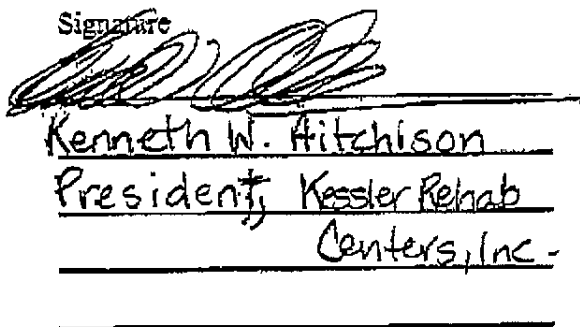 Signature
Kenneth W. Aitchison
President, Kessler Rehab
Centers, Inc.